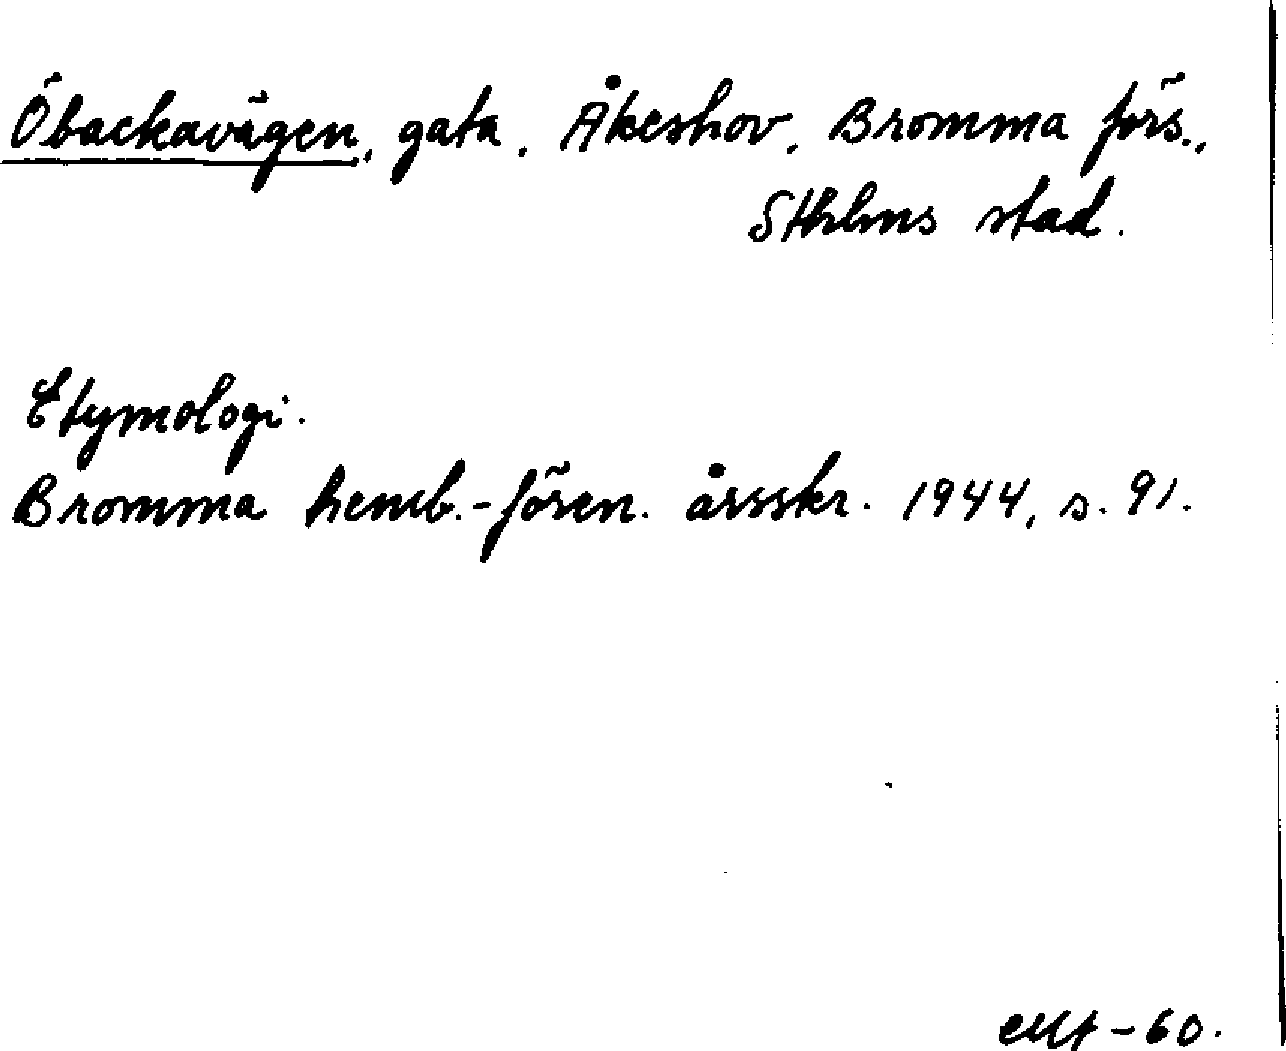 Öbackavägen, gata, Åkeshov, Bromma förs.,
Sthlms stad.
Etymologi.
Bromma hemb.-fören. årsskr. 1944, s. 91.
-60.